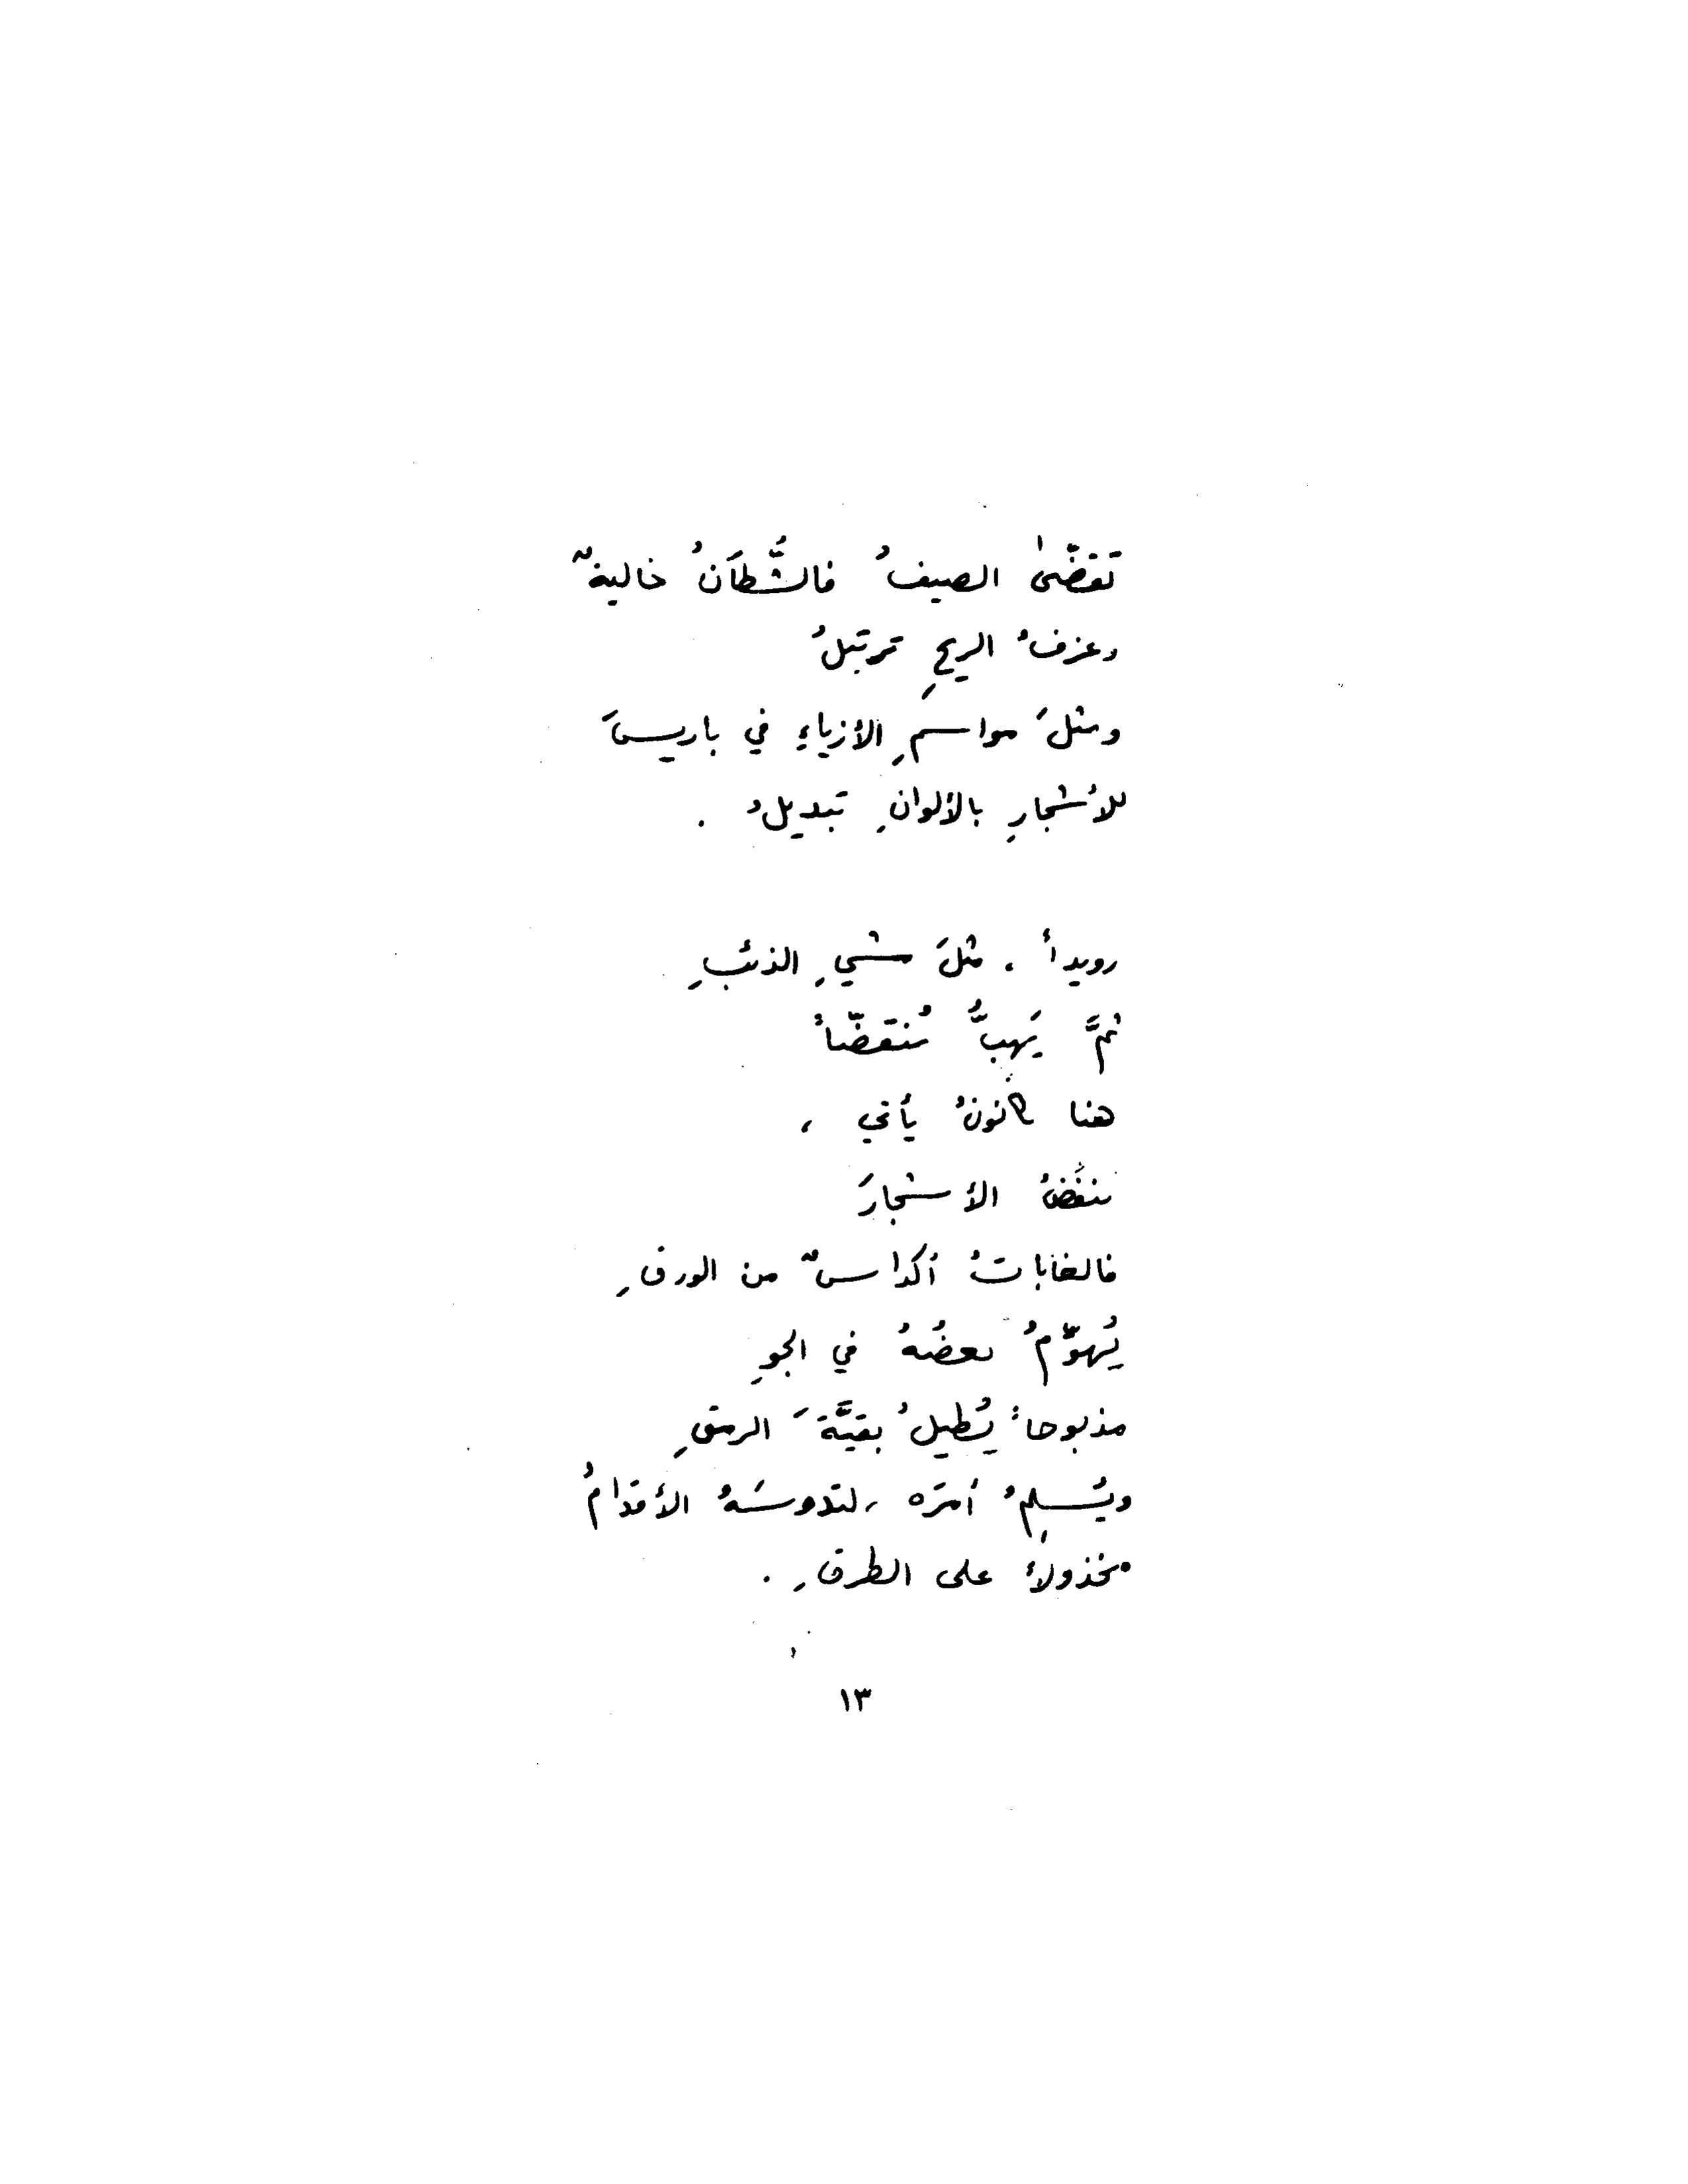 تَقضّىٰ الصيفُ فالشُّطآنُ خاليةٌ
وعزفُ الريحِ ترتيلُ
ومثلَ مواسمِ الأزياءِ في باريسَ
للأشجارِ بالألوانِ تبديلُ .
رويداً . مثلَ مشيِ الذئبِ
ثمَّ يَهبُّ مُنقضّاً
هنا كانونُ يأتي ،
ينفضُ الأشجارَ
فالغاباتُ أكداسٌ من الورقِ
يُهوّمُ بعضُهُ في الجوِ
مذبوحاً يُطيلُ بقيَّةَ الرمقِ
ويُسلِمُ أمرَه ، لتدوسَهُ الأقدامُ
مخذولاً على الطرقِ .
١٣